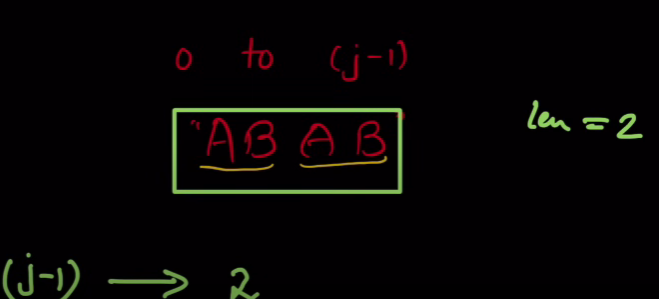 0 to (j-1)
"AB AB"
len = 2
(j-1) → 2